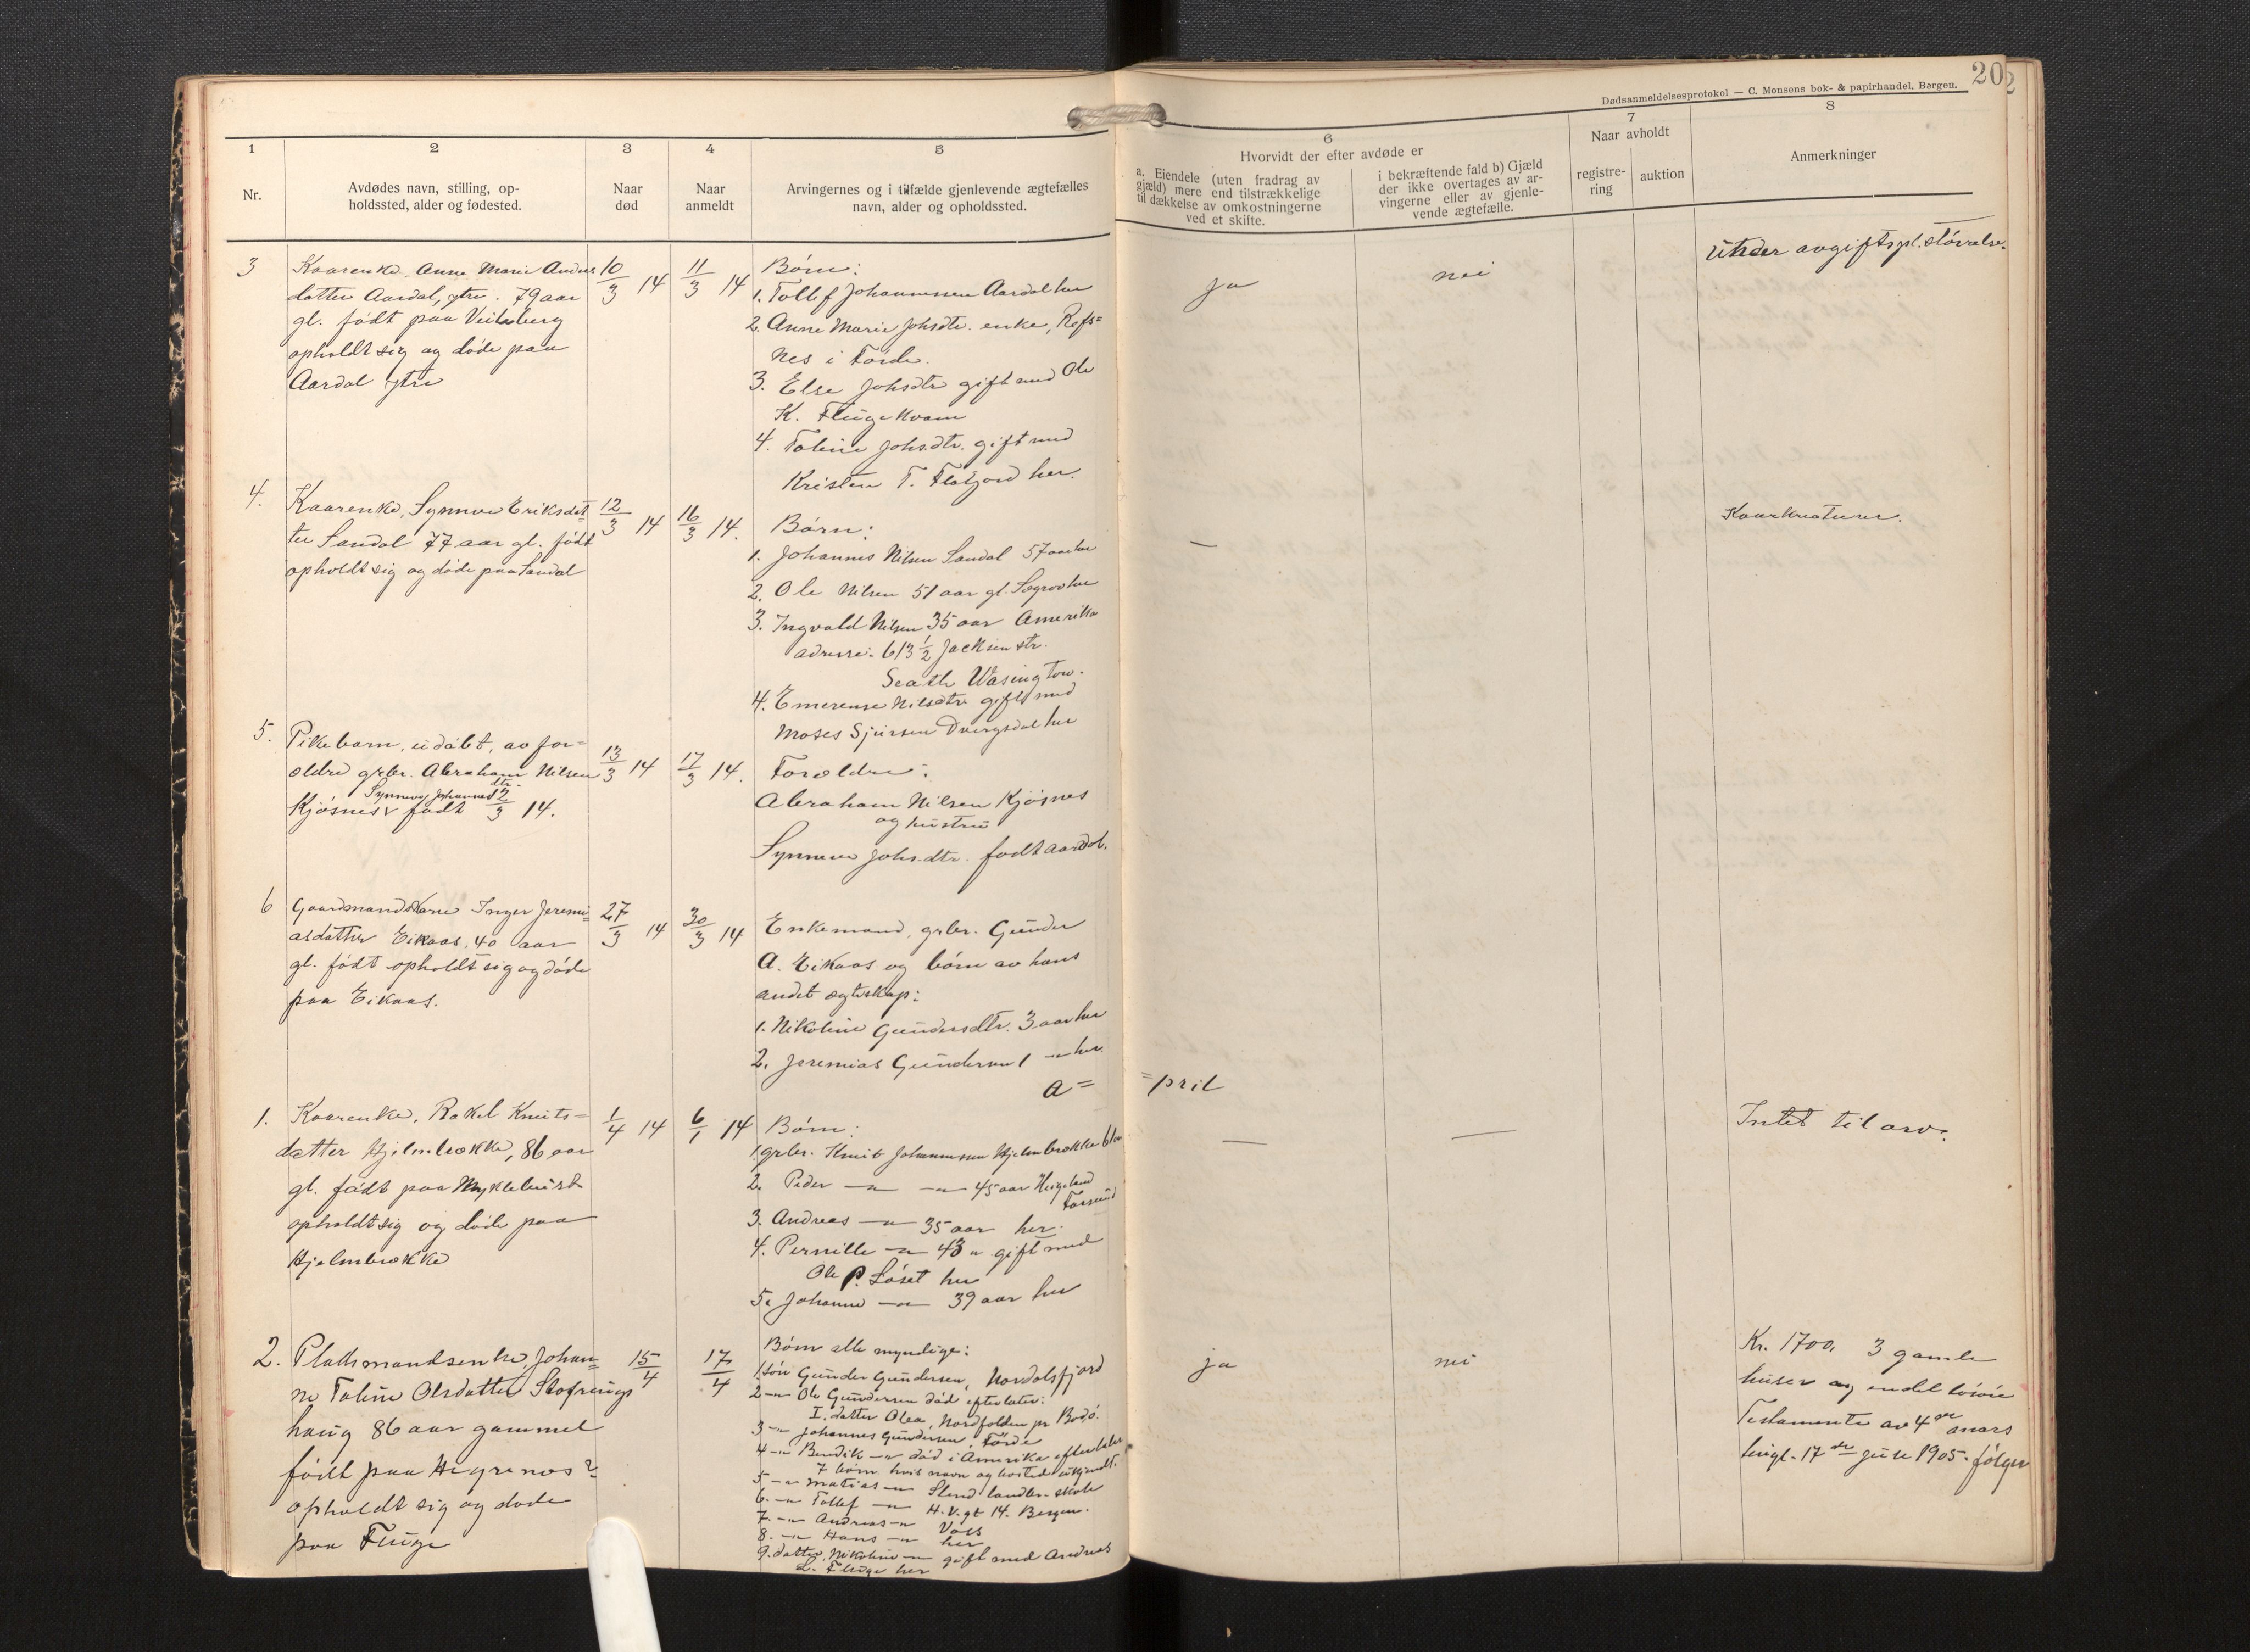 20
2
Dødsanmeldelsesprotokol — C. Monsens bok- & papirhandel, Bergen.
1
2
3
4
5
6
7
8
Nr.
Avdødes navn, stilling, op-
holdssted, alder og fødested.
Naar
død
Naar
anmeldt
Arvingernes og i tilfælde gjenlevende ægtefælles
navn, alder og opholdssted.
Hvorvidt der efter avdøde er
a. Eiendele (uten fradrag av
gjæld) mere end tilstrækkelige
til dækkelse av omkostningerne
ved et skifte.
i bekræftende fald b) Gjæld
der ikke overtages av ar-
vingerne eller av gjenle-
vende ægtefælle.
Naar avholdt
registre-
ring
auktion
Anmerkninger
3
Kaarenke. Anne Marie Anders
datter Aardal, ytre. 79 aar
gl. født paa
opholdt sig og døde paa
Aardal ytre
10/3 14
11/3 14
Børn:
1. Tollef Johannessen Aardal her
2. Anne Marie Johsdtr. enke, Refs=
nes i Førde.
3. Else Johsdtr gift med Ole
K. Fluge Kvam
4. Toline Johsdtr. gift med
Kristen T. Flatjord her.
ja
nei
Under avgiftspl. størrelse.
4.
Kaarenke, Synneve Eriksdat=
ter Sandal 77 aar gl. født
opholdt sig og døde paa Sandal
12/3 14
16/3 14.
Børn:
1. Johannes Nilsen Sandal 57 aar her
2. Ole Nilsen 51 aar gl. Søgrov her
3. Ingvald Nilsen 35 aar Amerika
adresse: 613 1/2 Jacksen str.
Seatle Wasington.
4. Emerense Nilsdtr gift med
Moses Sjursen Dvergsdal her
—
Kaarkreaturer.
5.
Pikebarn, udøbt, av for=
ældre grbr. Abraham Nilsen
Synneve Johannesdtr.
Kjøsnes v født 2/3 14.
13/3 14
17/3 14.
Forældre:
Abraham Nilsen Kjøsnes
og hustru
Synneve Johs.dtr. født Aardal.
6
Gaardmandskone Inger Jeremi=
asdatter Eikaas, 40 aar
gl. født opholdt sig og døde
paa Eikaas.
27/3 14
30/3 14
Enkemand, grbr. Gunder
A. Eikaas og børn av hans
andet ægteskap:
1. Nikoline Gundersdtr. 3 aar her
2. Jeremias Gundersen 1 —"— her.
A=
=pril
1.
Kaarenke, Rakel Knuts=
datter Hjelmbrekke, 86 aar
gl. født paa Myklebust
opholdt sig og døde paa
Hjelmbrekke
1/4 14
6/1 14
Børn:
1. grbr. Knut Johannessen Hjelmbrekke
2. Peder —"— —"— 45 aar
3. Andreas —"— 35 aar her.
4. Pernille —"— 43 " gift med
Ole P. Løset her
5. Johanne —"— 39 aar her
—
—
Intet til arv.
2.
Pladsmandsenke, Johan=
ne Toline Olsdatter
haug 86 aar gammel
født paa
opholdt sig og døde
paa Fluge
15/4
17/4
Børn alle myndige:
1. søn Gunder Gundersen, Nordalsfjord
2 —"— Ole Gundersen død efterlater:
I. datter Olea, Nordfolden pr Bodø.
3 —"— Johannes Gundersen, Førde
4 —"— Bendik —"— død i Amerika efterlater
7 børn hvis navn og bosted ukjendt.
5 —"— Matias —"— Stend landbr. skole
6. —"— Tollef —"— H. V. gt 14. Bergen.
7. —"— Andreas —"— Voss
8. —"— Hans —"— her
9. datter, Nikoline —"— gift med Andreas
L. Fluge her
ja
nei
Kr. 1700, 3 gamle
huser og endel løsøre
Testamente av 4de mars
tingl. 17de 1905. følger